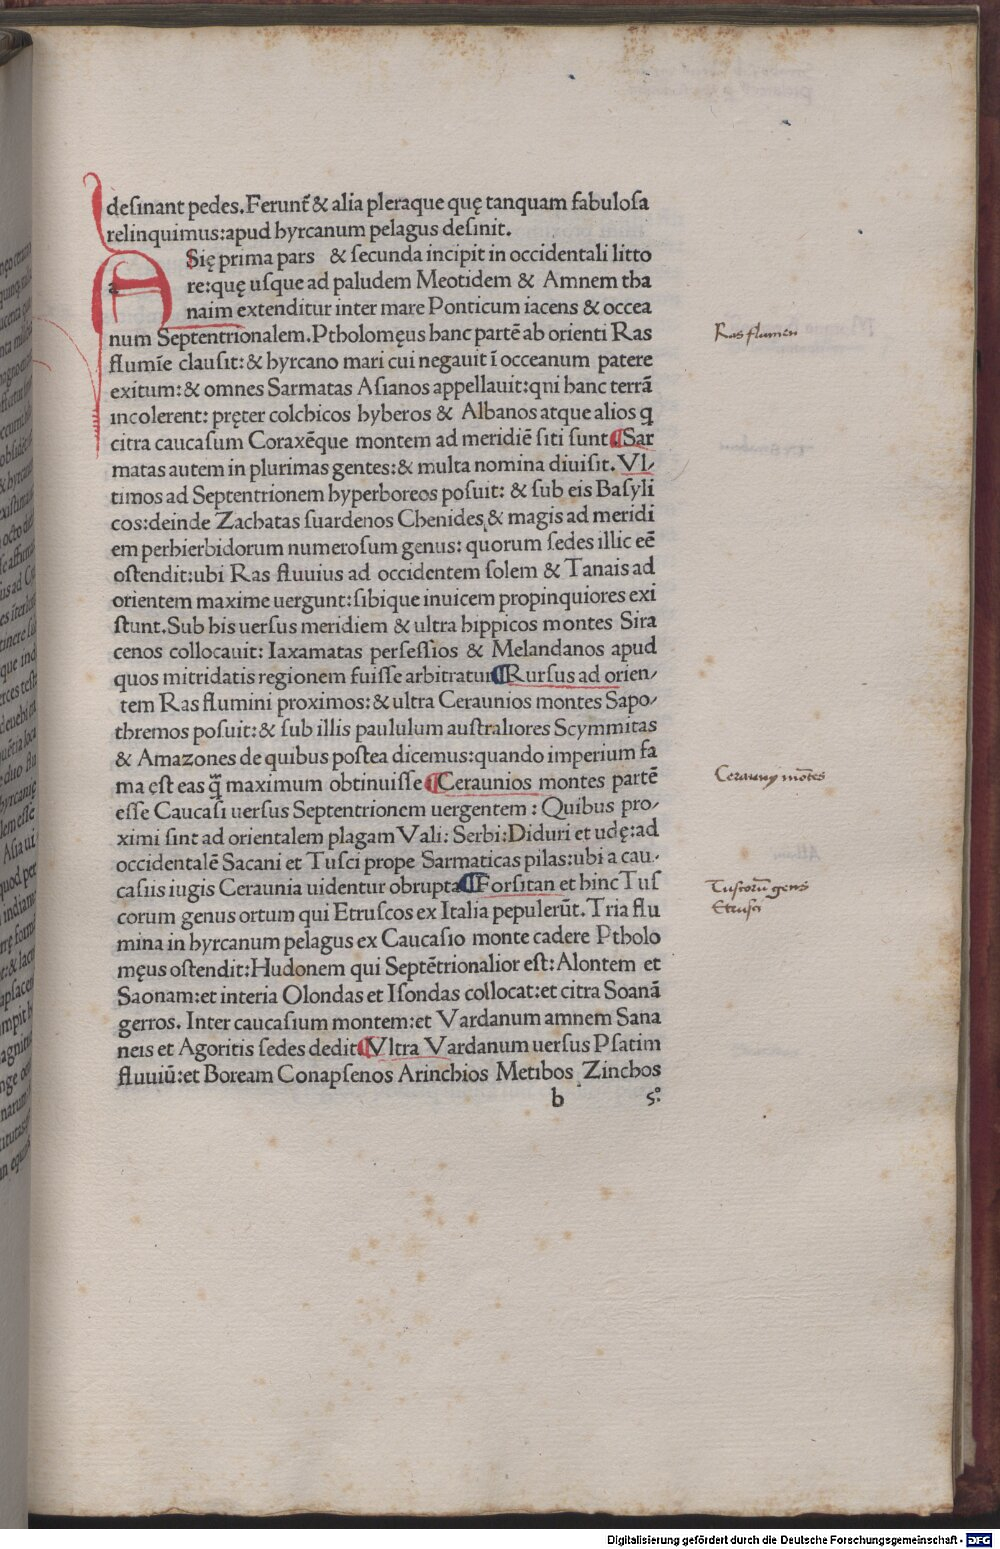 desinant pedes.Ferunt̃ & alia pleraque quę tanquam fabulosa
relinquimus:apud hyrcanum pelagus desinit.
ASię prima pars & secunda incipit in occidentali litto
re:quę usque ad paludem Meotidem & Amnem tha
naim extenditur inter mare Ponticum iacens & occea
num Septentrionalem.Ptholomęus hanc partē ab orienti Ras
flumīe clausit:& hyrcano mari cui negauit ī occeanum patere
exitum:& omnes Sarmatas Asianos appellauit:qni hanc terrā
incolerent: pręter colchicos hyberos & Albanos atque alios q
citra caucasum Coraxēque montem ad meridiē siti sunt ¶Sar
matas autem in plurimas gentes:& multa nomina diuisit.Vl-
timos ad Septentrionem hyperboreos posuit: & sub eis Basyli
cos:deinde Zachatas suardenos Chenides & magis ad meridi
em perhierbidorum numerosum genus: quorum sedes illic eē
ostendit:ubi Ras fluuius ad occidentem solem & Tanais ad
orientem maxime uergunt:sibique inuicem propinquiores exi
stunt.Sub his uersus meridiem & ultra hippicos montes Sira
cenos collocauit: Iaxamatas persessios & Melandanos apud
quos mitridatis regionem fuisse arbitratur ¶Rursus ad orien-
tem Ras flumini proximos:& ultra Ceraunios montes Sapo-
thremos posuit:& sub illis paululum australiores Scymmitas
& Amazones de quibus postea dicemus:quando imperium fa
ma est eas q̃ maximum obtinuisse ¶Ceraunios montes partē
esse Caucasi uersus Septentrionem uergentem : Quibus pro-
ximi sint ad orientalem plagam Vali: Serbi:Diduri et udę:ad
occidentalē Sacani et Tusci prope Sarmaticas pilas:ubi a cau-
casiis iugis Ceraunia uidentur obrupta ¶Forsitan et hinc Tus
corum genus ortum qui Etruscos ex Italia pepulerūt.Tria flu
mina in hyrcanum pelagus ex Caucasio monte cadere Ptholo
męus ostendit:Hudonem qui Septētrionalior est:Alontem et
Saonam:et interia Olondas et Isondas collocat:et citra Soanā
gerros. Inter caucasium montem:et Vardanum amnem Sana
neis et Agoritis sedes dedit ¶Vltra Vardanum uersus Psatim
fluuiū:et Boream Conapsenos Arinchios Metibos Zinchos
b 5º
a
Ras flumen
Cerauny mōtes
Tuscorū gens
Etrusci
Digitalisierung gefördert durch die Deutsche Forschungsgemeinschaft - DFG